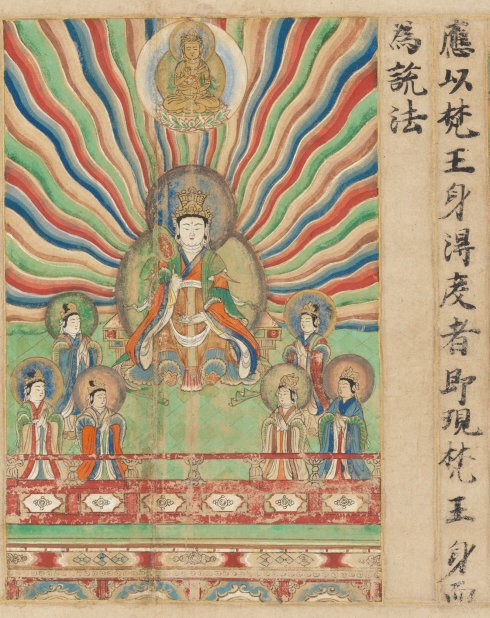 應以梵王身得度者即現梵王身而
為說法